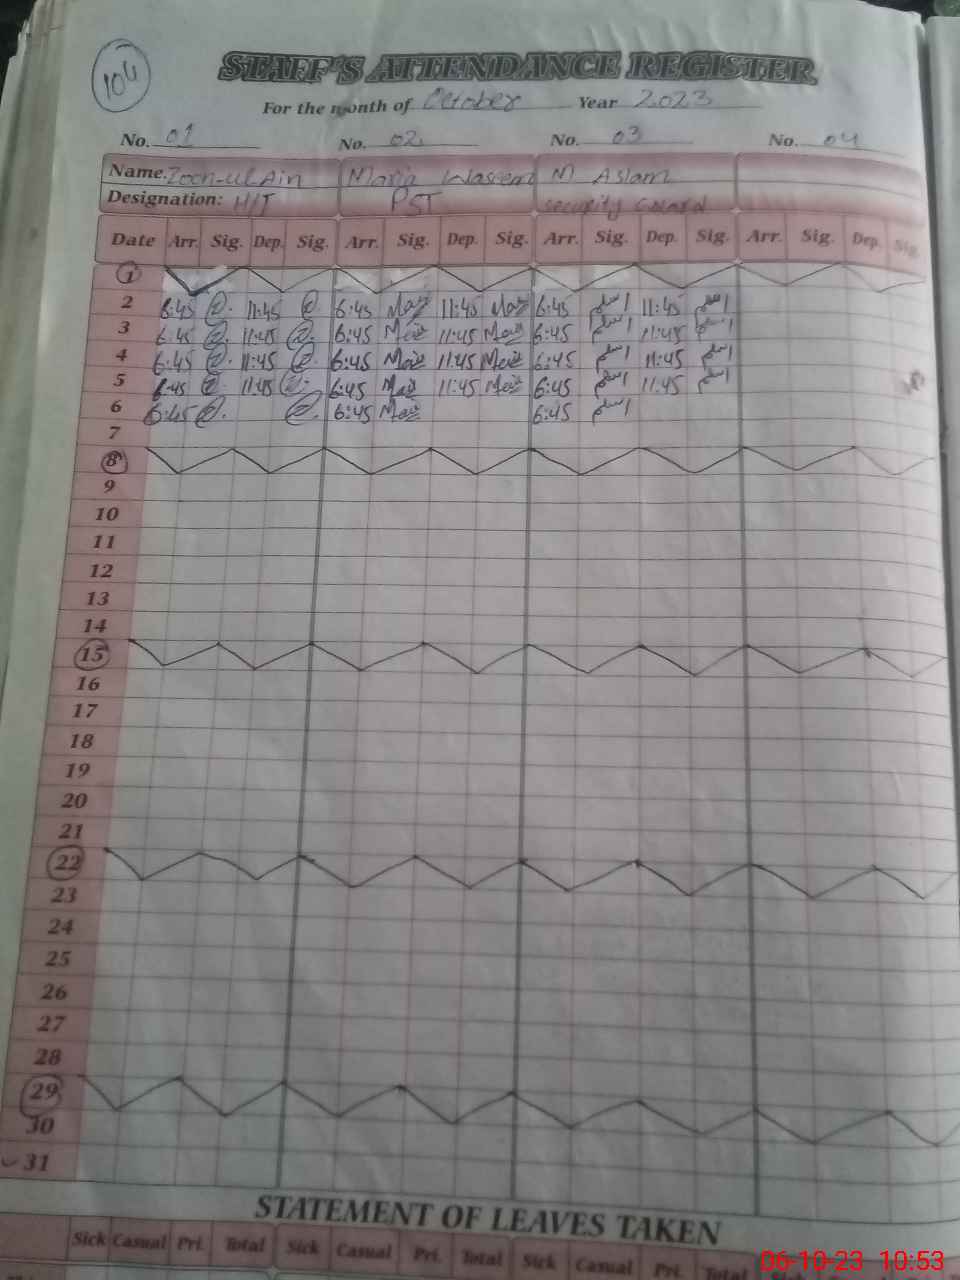 104
STAFF'S ATTENDANCE REGISTER
For the month of October Year 2023
No. 01 No. 02 No. 03 No. 04
Name. Zoon-ul Ain Maria Waseem M Aslam
Designation: H/T PST security Guard
Date Arr. Sig. Dep. Sig. Arr. Sig. Dep. Sig. Arr. Sig. Dep. Sig. Arr. Sig. Dep. Sig.
1
2 6:45 11:45 6:45 11:45 6:45 اسلم 11:45 اسلم
3 6:45 11:45 6:45 11:45 6:45 اسلم 11:45 اسلم
4 6:45 11:45 6:45 11:45 6:45 اسلم 11:45 اسلم
5 6:45 11:45 6:45 11:45 6:45 اسلم 11:45 اسلم
6 6:45 6:45 6:45 اسلم
7
8
9
10
11
12
13
14
15
16
17
18
19
20
21
22
23
24
25
26
27
28
29
30
31
STATEMENT OF LEAVES TAKEN
Sick Casual Pri. Total Sick Casual Pri. Total Sick Casual Pri. Total Sick
06-10-23 10:53